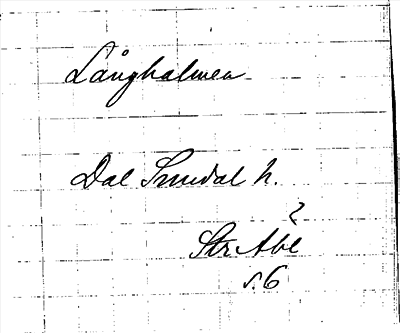 Långholmen
Dal Sundal h.
?
Str. Abl
s. 6